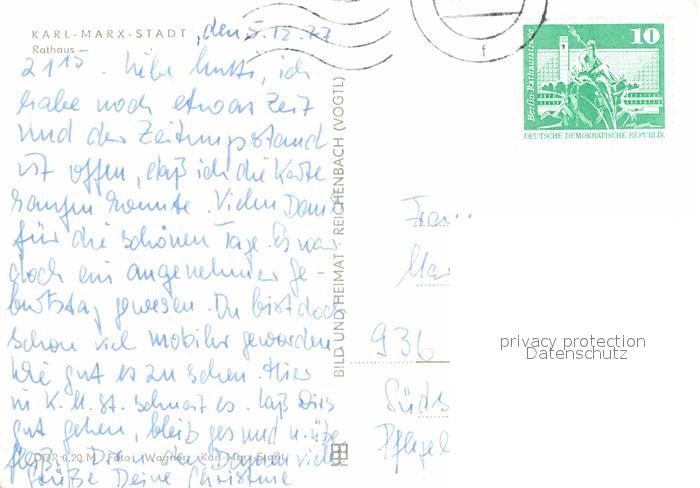 KARL-MARX-STADT
Rathaus
, den 5.12.77
21 15. Liebe Mutti, ich
habe noch etwas Zeit
und der Zeitungsstand
ist offen, daß ich die Karte
konnte. Vielen Dank
für die schönen Tage. Es war
doch ein angenehmer Ge-
burtstag gewesen. Du bist doch
schon viel mobiler geworden
wie gut es zu sehen. Hier
in K.M.St. schneit es. Laß Dirs
gut gehen, bleib gesund u. übe
fleißig. viele
Grüße Deine Christine
DDR 0,20 M Foto: Wagner, Karl-Marx-Stadt
BILD UND HEIMAT REICHENBACH (VOGTL)
10
Berlin-Rathausstraße
DEUTSCHE DEMOKRATISCHE REPUBLIK
f
Frau
Mar
936
Süds
Pflegel
privacy protection
Datenschutz